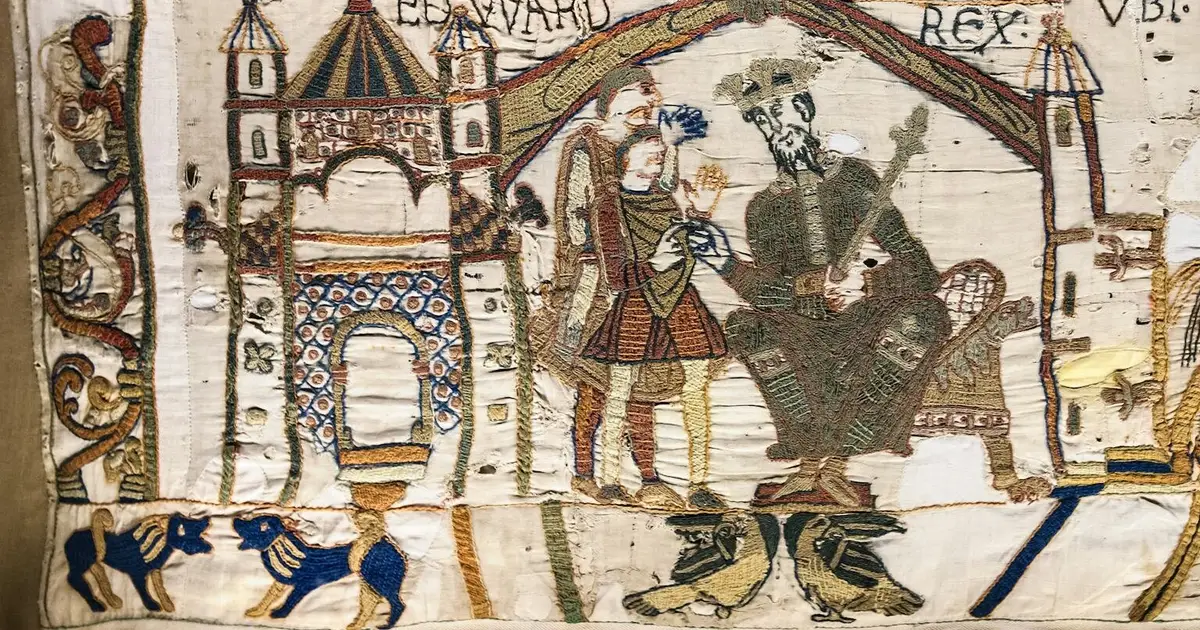 EDWARD REX: VBI: